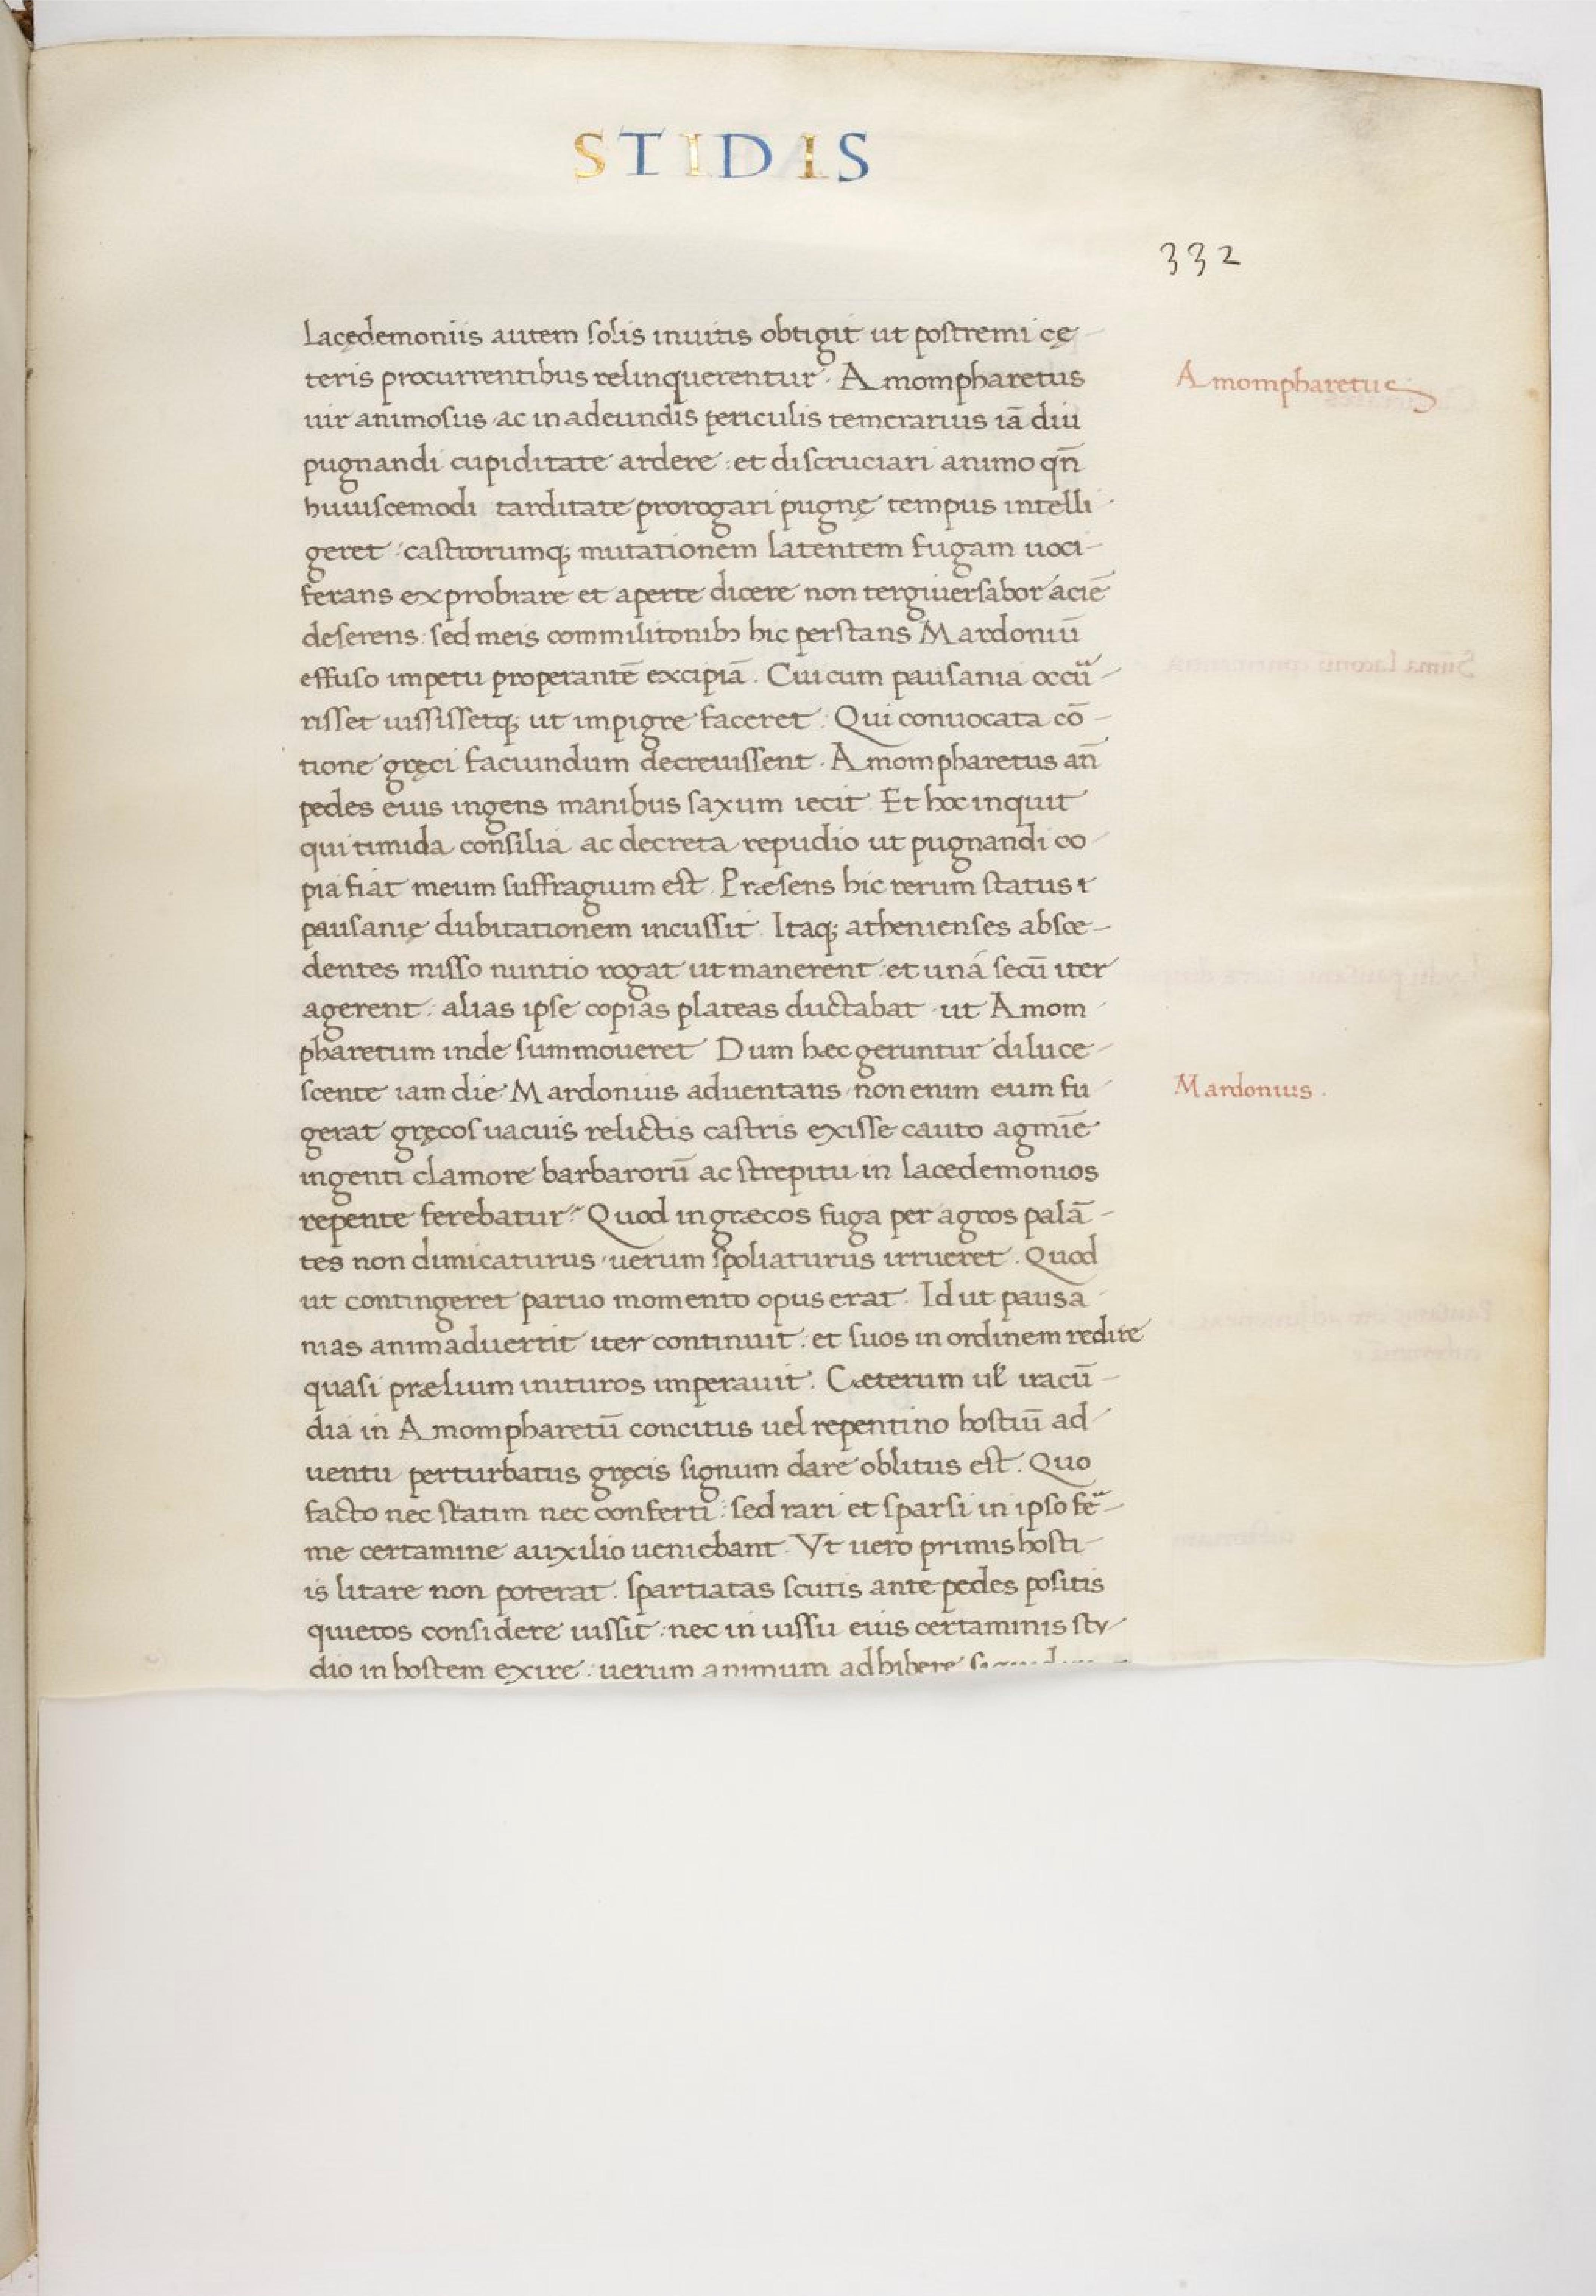 STIDIS
332
Lacędemoniis autem solis inuitis obtigit ut postremi cę-
teris procurrentibus relinquerentur. Amompharetus
Amompharetus
uir animosus ac in adeundis periculis temerarius iā diu
pugnandi cupiditate ardere: et discruciari animo qn̄
huiuscemodi tarditate prorogari pugnę tempus intelli-
geret: castrorumq; mutationem latentem fugam uoci-
ferans exprobrare et aperte dicere non tergiuersabor aciē
deserens: sed meis commilitonibꝫ hic perstans Mardoniū
effuso impetu properantē excipiā. Cui cum pausania occū-
risset iussissetq; ut impigre faceret: Qui conuocata cō-
tione gręci faciundum decreuissent. Amompharetus an̄
pedes eius ingens manibus saxum iecit. Et hoc inquit
qui timida consilia ac decreta repudio ut pugnandi co-
pia fiat meum suffragium est. Præsens hic rerum status
pausanię dubitationem incussit. Itaq; athenienses absce-
dentes misso nuntio rogat ut manerent: et una secū iter
agerent: alias ipse copias plateas ductabat ut Amom-
pharetum inde summoueret. Dum hæc geruntur diluce-
scente iam die Mardonius aduentans, non enim eum fu-
Mardonius.
gerat gręcos uacuis relictis castris exisse cauto agmīe
ingenti clamore barbarorū ac strepitu in lacedemonios
repente ferebatur. Quod in græcos fuga per agros palā-
tes non dimicaturus, uerum spoliaturus irrueret. Quod
ut contingeret paruo momento opus erat. Id ut pausa-
nias animaduertit iter continuit: et suos in ordinem redire
quasi prælium inituros imperauit. Cæterum ul̄ iracū-
dia in Amompharetū concitus uel repentino hostiū ad-
uentu perturbatus gręcis signum dare oblitus est. Quo
facto nec statim nec conferti: sed rari et sparsi in ipso fer-
me certamine auxilio ueniebant. Vt uero primis hosti-
is litare non poterat: spartiatas scutis ante pedes positis
quietos considere iussit: nec in iussu eius certaminis stv-
dio in hostem exire: uerum animum adhibere